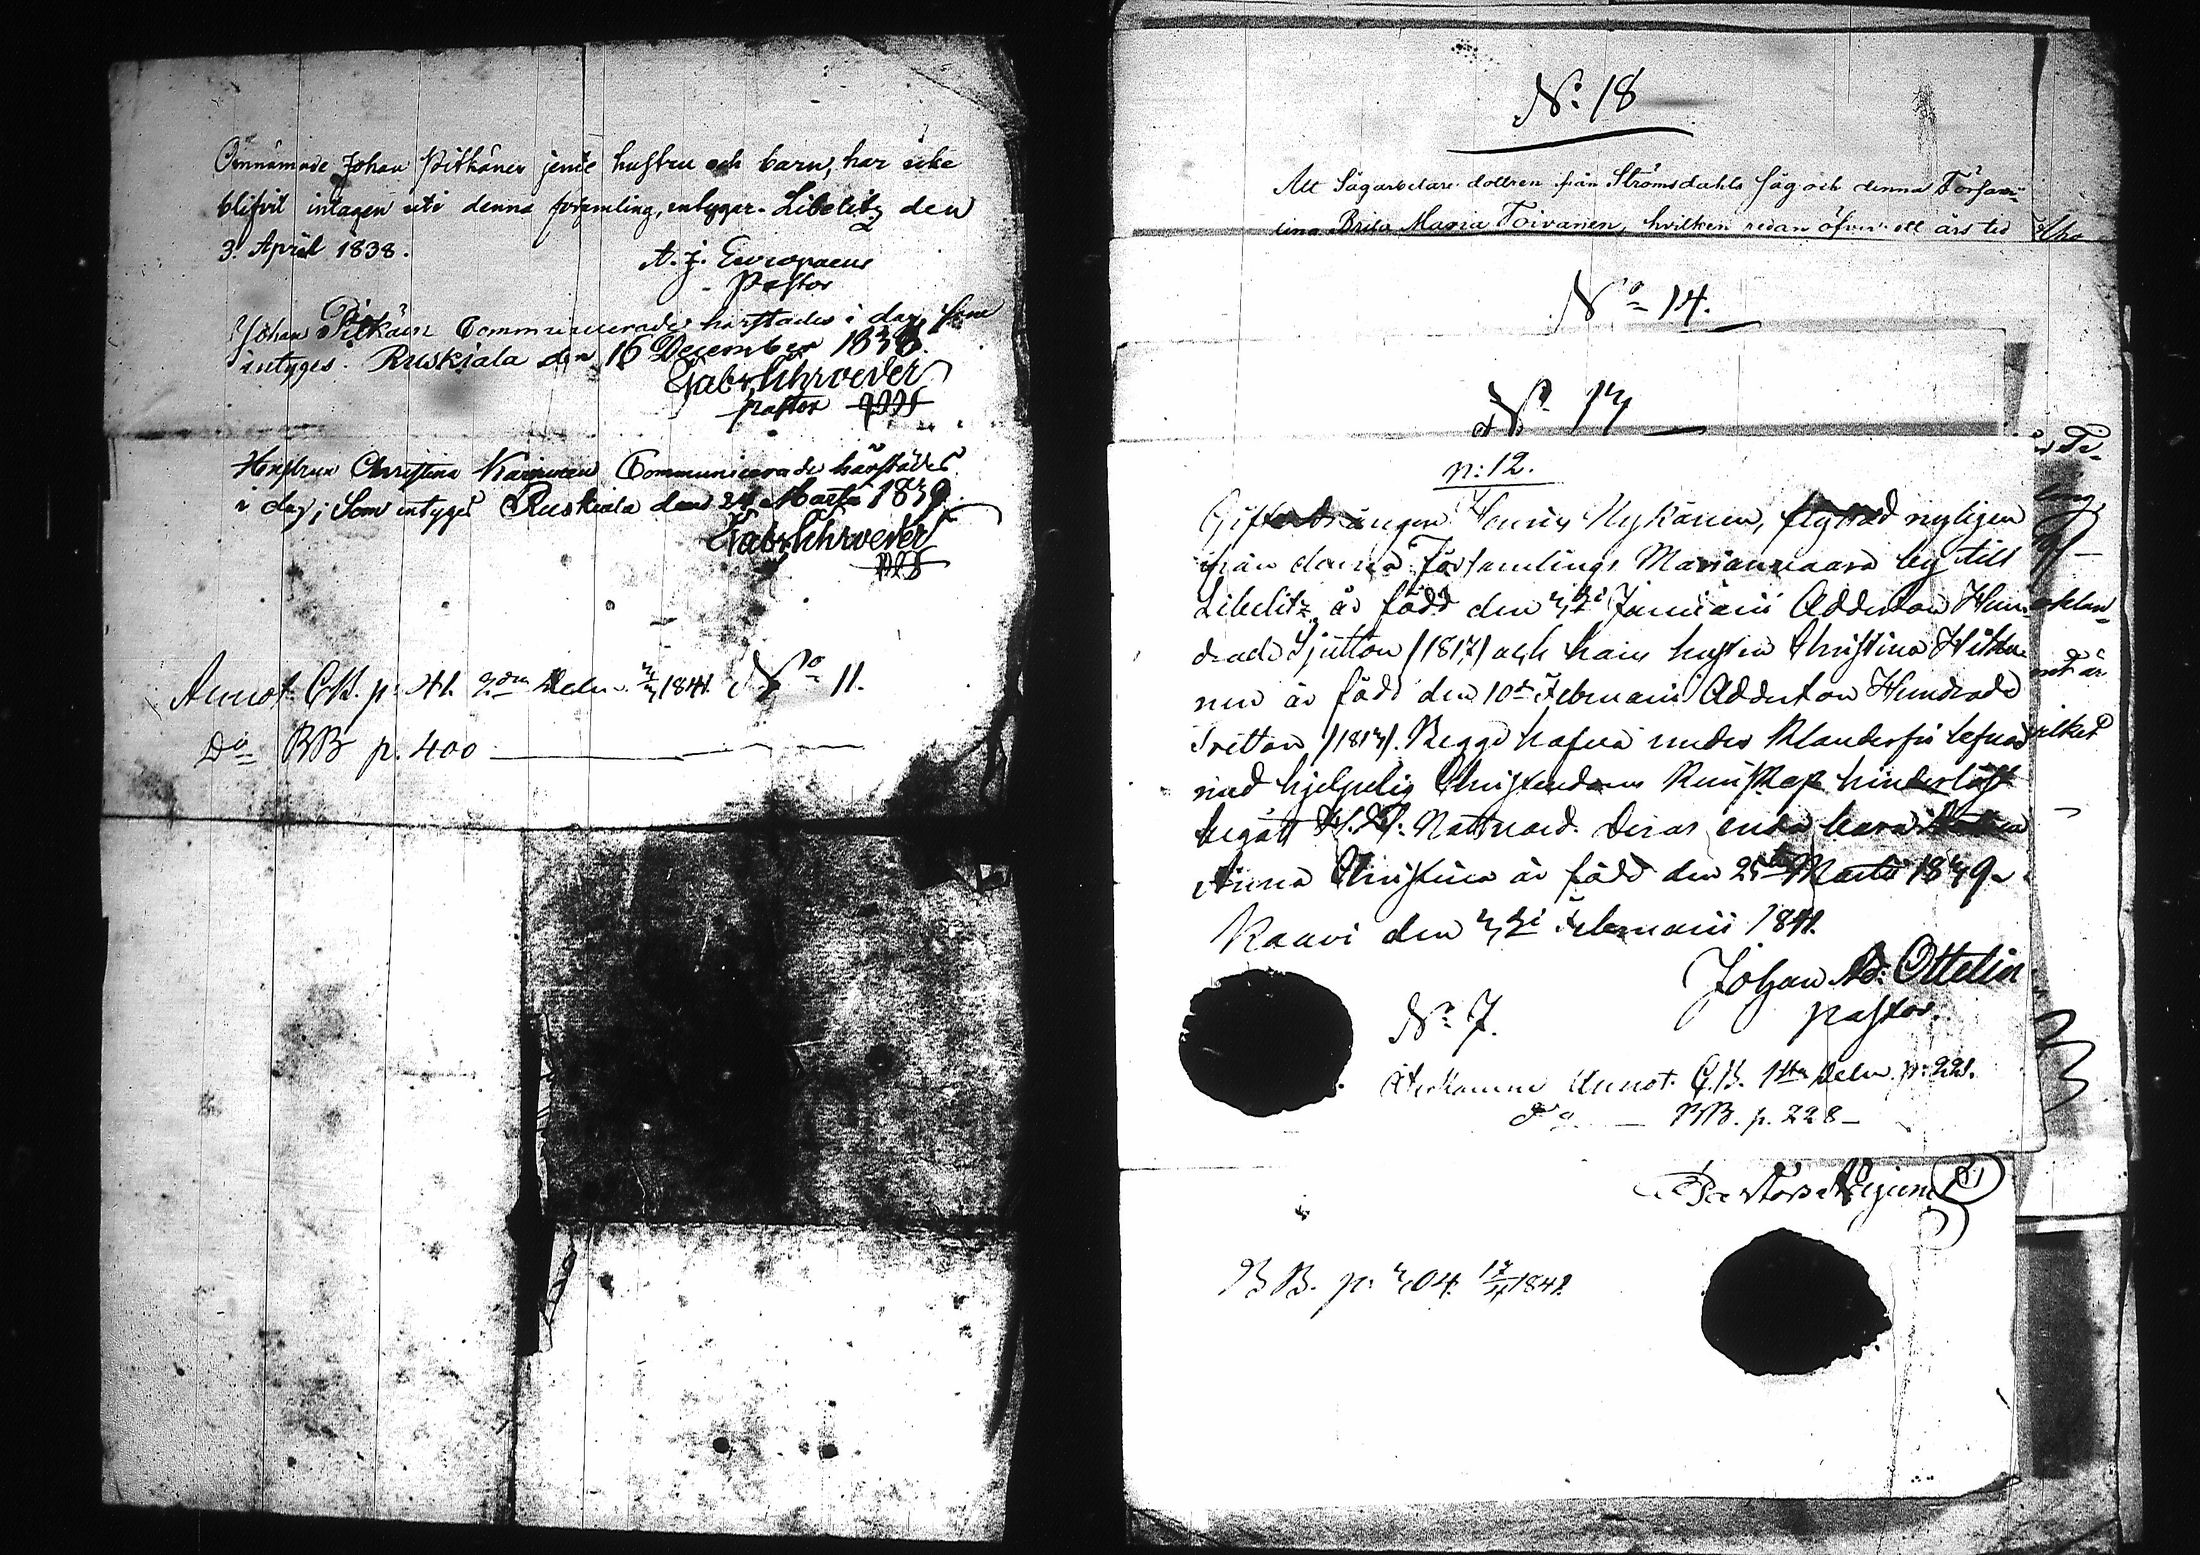 Omnämnde Johan Pitkänen jemte hustru och barn, har icke
blifvit intagen uti denna församling, intygar. Libelitz den
3. April 1838.
A. J. Europaeus
Pastor
Johan Pitkäin Communicerade härstädes i dag, som
intyges. Ruskiala den 16 December 1838.
Gab. Schroeder
pastor
Hustrun Christina Communicerade härstädes
i dag; som intyges Ruskiala den 24 Martii 1839.
Gab. Schroeder
Annot. C.B. p. 41. 2dra Delen 1841. No 11.
Do BB p. 400
No 18
Att Sågarbetare dottren från Strömsdahls såg och denna Försam-
ling Brita Maria Toivanen, hvilken redan öfver ett års tid
No 14.
No 17
n: 12.
Gifte drängen Nykänen, nyligen
ifrån denna Församlings Marianvaara by till
Libelitz, är född den 3di Januarii Aderton Hun-
drade Sjutton /1817/ och hans hustru Christina
nen är född den 10de Februarii Aderton Hundrade
Tretton /1813/. Begge hafva under klanderfri lefnad
med hjelpelig Christendoms Kunskap hinderlöst
begått H. H. Nattvard. Deras enda barn
Anna Christina är född den 25te Martii 1839.
Kaavi den 3di Februarii 1841.
Johan Ad. Ottelin
pastor.
No 7.
Återkommen Annot. C.B. 1sta Delen p. 221.
do — BB. p. 228 —
BB. p. 304. 1841.